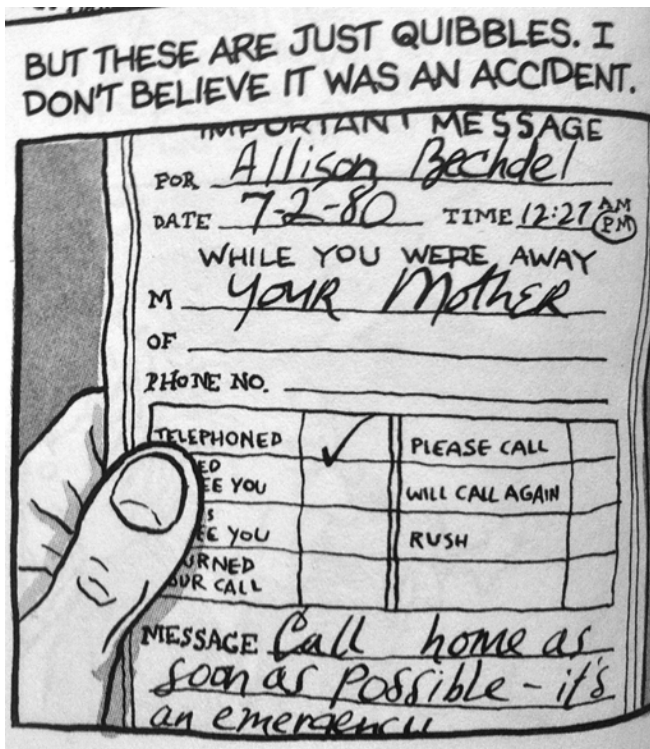 BUT THESE ARE JUST QUIBBLES. I
DON'T BELIEVE IT WAS AN ACCIDENT.
IMPORTANT MESSAGE
FOR Allison Bechdel
DATE 7-2-80 TIME 12:27 AM PM
WHILE YOU WERE AWAY
M Your Mother
OF
PHONE NO.
TELEPHONED PLEASE CALL
EE YOU WILL CALL AGAIN
EE YOU RUSH
URNED
OUR CALL
MESSAGE Call home as
soon as possible - it's
an emergency